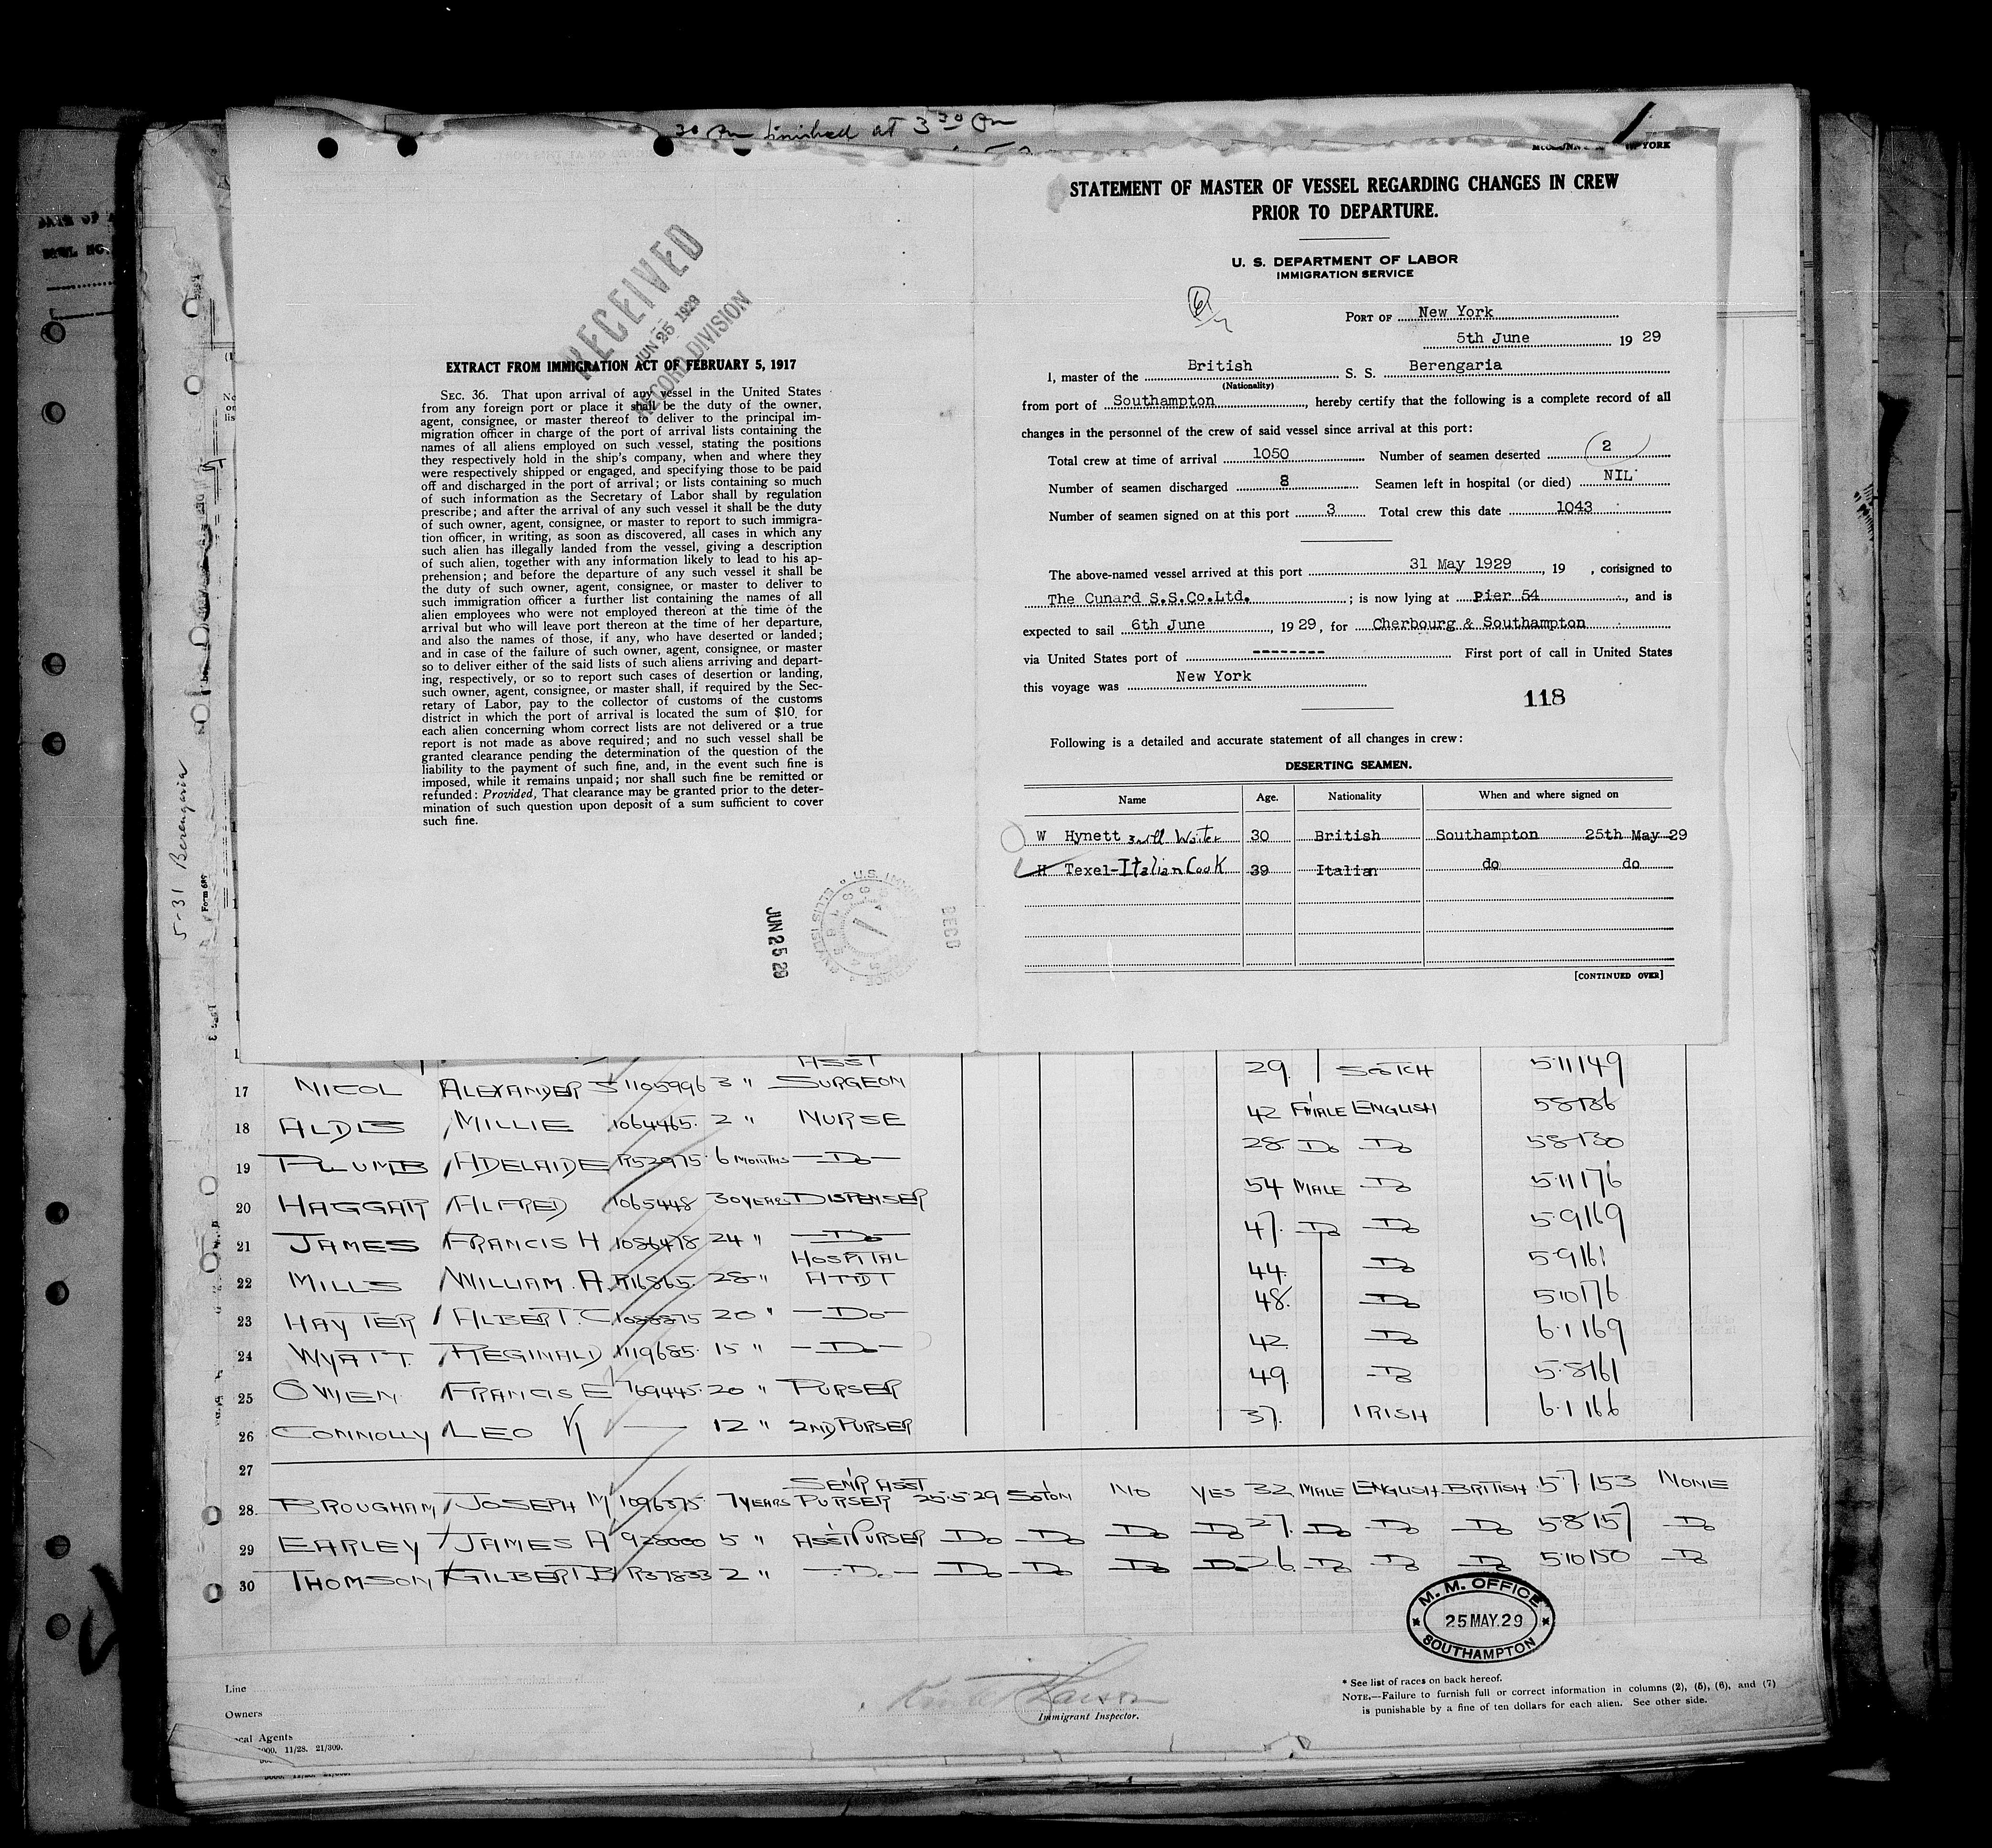 finished at 3 30 Pm
RECEIVED
JUN 25 1929
RECORD DIVISION
EXTRACT FROM IMMIGRATION ACT OF FEBRUARY 5, 1917
SEC. 36. That upon arrival of any vessel in the United States
from any foreign port or place it shall be the duty of the owner,
agent, consignee, or master thereof to deliver to the principal im-
migration officer in charge of the port of arrival lists containing the
names of all aliens employed on such vessel, stating the positions
they respectively hold in the ship's company, when and where they
were respectively shipped or engaged, and specifying those to be paid
off and discharged in the port of arrival; or lists containing so much
of such information as the Secretary of Labor shall by regulation
prescribe; and after the arrival of any such vessel it shall be the duty
of such owner, agent, consignee, or master to report to such immigra-
tion officer, in writing, as soon as discovered, all cases in which any
such alien has illegally landed from the vessel, giving a description
of such alien, together with any information likely to lead to his ap-
prehension; and before the departure of any such vessel it shall be
the duty of such owner, agent, consignee, or master to deliver to
such immigration officer a further list containing the names of all
alien employees who were not employed thereon at the time of the
arrival but who will leave port thereon at the time of her departure,
and also the names of those, if any, who have deserted or landed;
and in case of the failure of such owner, agent, consignee, or master
so to deliver either of the said lists of such aliens arriving and depart-
ing, respectively, or so to report such cases of desertion or landing,
such owner, agent, consignee, or master shall, if required by the Sec-
retary of Labor, pay to the collector of customs of the customs
district in which the port of arrival is located the sum of $10 for
each alien concerning whom correct lists are not delivered or a true
report is not made as above required; and no such vessel shall be
granted clearance pending the determination of the question of the
liability to the payment of such fine, and, in the event such fine is
imposed, while it remains unpaid; nor shall such fine be remitted or
refunded: Provided, That clearance may be granted prior to the deter-
mination of such question upon deposit of a sum sufficient to cover
such fine.
JUN 25 29
REC'D
5-31 Berengaria
Form 689
YORK
STATEMENT OF MASTER OF VESSEL REGARDING CHANGES IN CREW
PRIOR TO DEPARTURE.
U. S. DEPARTMENT OF LABOR
IMMIGRATION SERVICE
PORT OF New York
5th June 19 29
I, master of the British S. S. Berengaria
(Nationality)
from port of Southampton, hereby certify that the following is a complete record of all
changes in the personnel of the crew of said vessel since arrival at this port:
Total crew at time of arrival 1050 Number of seamen deserted 2
Number of seamen discharged 8 Seamen left in hospital (or died) NIL
Number of seamen signed on at this port 3 Total crew this date 1043
The above-named vessel arrived at this port 31 May 1929, 19 , consigned to
The Cunard S.S.Co.Ltd. ; is now lying at Pier 54, and is
expected to sail 6th June, 19 29, for Cherbourg & Southampton
via United States port of -------- First port of call in United States
this voyage was New York
118
Following is a detailed and accurate statement of all changes in crew:
DESERTING SEAMEN.
Name Age. Nationality When and where signed on
W Hynett Waiter 30 British Southampton 25th May 29
H Texel-Italian Cook 39 Italian do do
[CONTINUED OVER]
ASST
17 NICOL ALEXANDER S 1105996 3 " SURGEON 29 SCOTCH 5·11 149
18 ALDIS MILLIE 1064465 2 " NURSE 42 F'MALE ENGLISH 5·8 136
19 PLUMB ADELAIDE R52975 6 MONTHS —Do— 28 Do Do 5·8 130
20 HAGGAR ALFRED 1065448 30 YEARS DISPENSER 54 MALE Do 5·11 176
21 JAMES FRANCIS H 1086478 24 " —Do— 47 Do Do 5·9 169
HOSPITAL
22 MILLS WILLIAM. A. R16865 28 " ATTDT 44 Do 5·9 161
23 HAYTER ALBERT. C 1088875 20 " —Do— 48 Do 5·10 176
24 WYATT REGINALD 1119685 15 " —Do— 42 Do 6·1 169
25 OWEN FRANCIS E 769445 20 " PURSER 49 Do 5·8 161
26 CONNOLLY LEO — 12 " 2ND PURSER 37 IRISH 6·1 166
27
SEN'R ASST
28 BROUGHAM JOSEPH M 1096375 7 YEARS PURSER 25·5·29 SOTON NO YES 32 MALE ENGLISH BRITISH 5·7 153 NONE
29 EARLEY JAMES A 928000 5 " ASST PURSER Do Do Do Do 27 Do Do Do 5·8 157 Do
30 THOMSON GILBERT.B R37833 2 " —Do— Do Do Do Do 26 Do Do Do 5·10 150 Do
M. M. OFFICE
25 MAY. 29
SOUTHAMPTON
Line
Owners
Agents
Larson
Immigrant Inspector.
* See list of races on back hereof.
NOTE.—Failure to furnish full or correct information in columns (2), (5), (6), and (7)
is punishable by a fine of ten dollars for each alien. See other side.
11/28. 21/309.